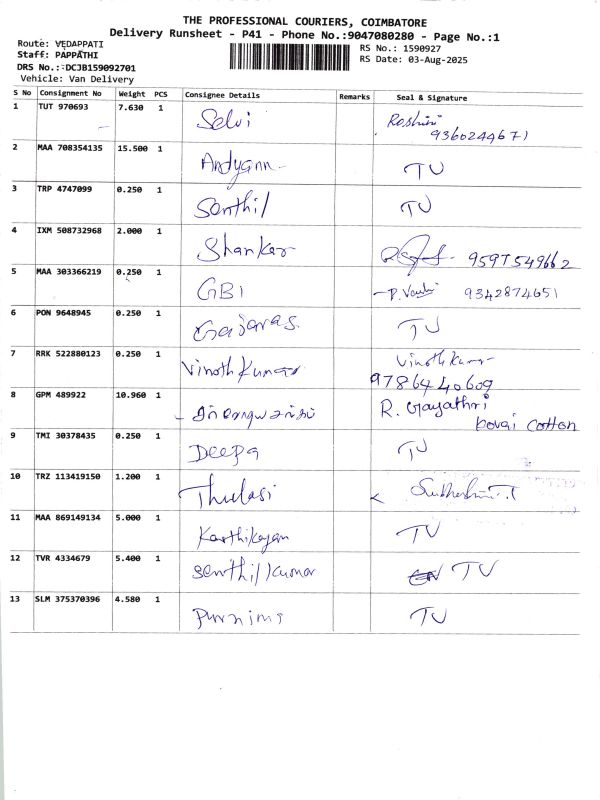 THE PROFESSIONAL COURIERS, COIMBATORE
Delivery Runsheet - P41 - Phone No.:9047080280 - Page No.:1
Route: VEDAPPATI
Staff: PAPPATHI
DRS No.: DCJB159092701
Vehicle: Van Delivery
RS No.: 1590927
RS Date: 03-Aug-2025
S No Consignment No Weight PCS Consignee Details Remarks Seal & Signature
1 TUT 970693 7.630 1 Selvi Roshini
9360244671
2 MAA 708354135 15.500 1 TU
3 TRP 4747099 0.250 1 Senthil TU
4 IXM 508732968 2.000 1 Shanker 9597549662
5 MAA 303366219 0.250 1 GBI 9342874651
6 PON 9648945 0.250 1 Gajaras TU
7 RRK 522880123 0.250 1 Vinoth Kumar Vinoth Kumar
9786440609
8 GPM 489922 10.960 1 R. Gayathri
kovai cotton
9 TMI 30378435 0.250 1 Deepa TU
10 TRZ 113419150 1.200 1 Thulasi
11 MAA 869149134 5.000 1 Karthikeyan TU
12 TVR 4334679 5.400 1 Senthilkumar TU
13 SLM 375370396 4.580 1 Purnima TU